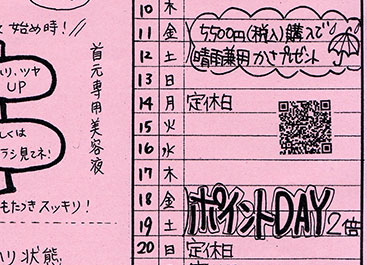 始め時!!
ハリ、ツヤ
UP
首元専用美容液
しくは
ラシ見てネ!
もたつきスッキリ!
ハリ状態
10 木
11 金 5500円(税込)購入で
12 土 晴雨兼用かさプレゼント
13 日
14 月 定休日
15 火
16 水
17 木
18 金 ポイントDAY
19 土 2倍
20 日 定休日